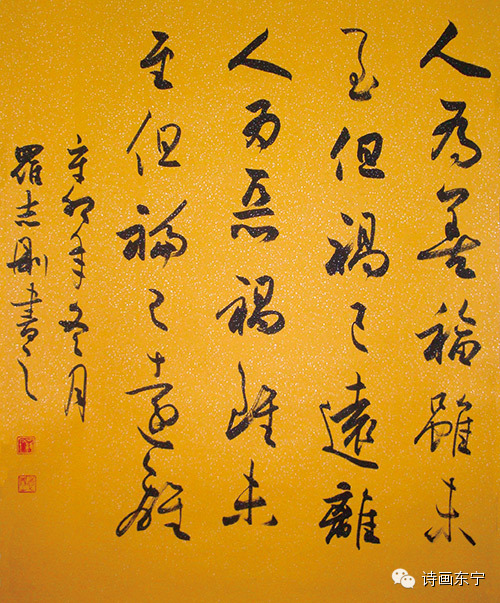 人为善福雖未
至但禍已遠離
人为惡禍雖未
至但福已遠離
辛卯年冬月
羅志刚書之
诗画东宁